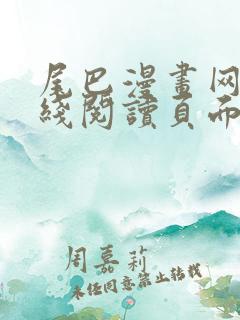 尾巴漫畫网
綫閱讀頁面
周嘉莉
未经同意禁止转载